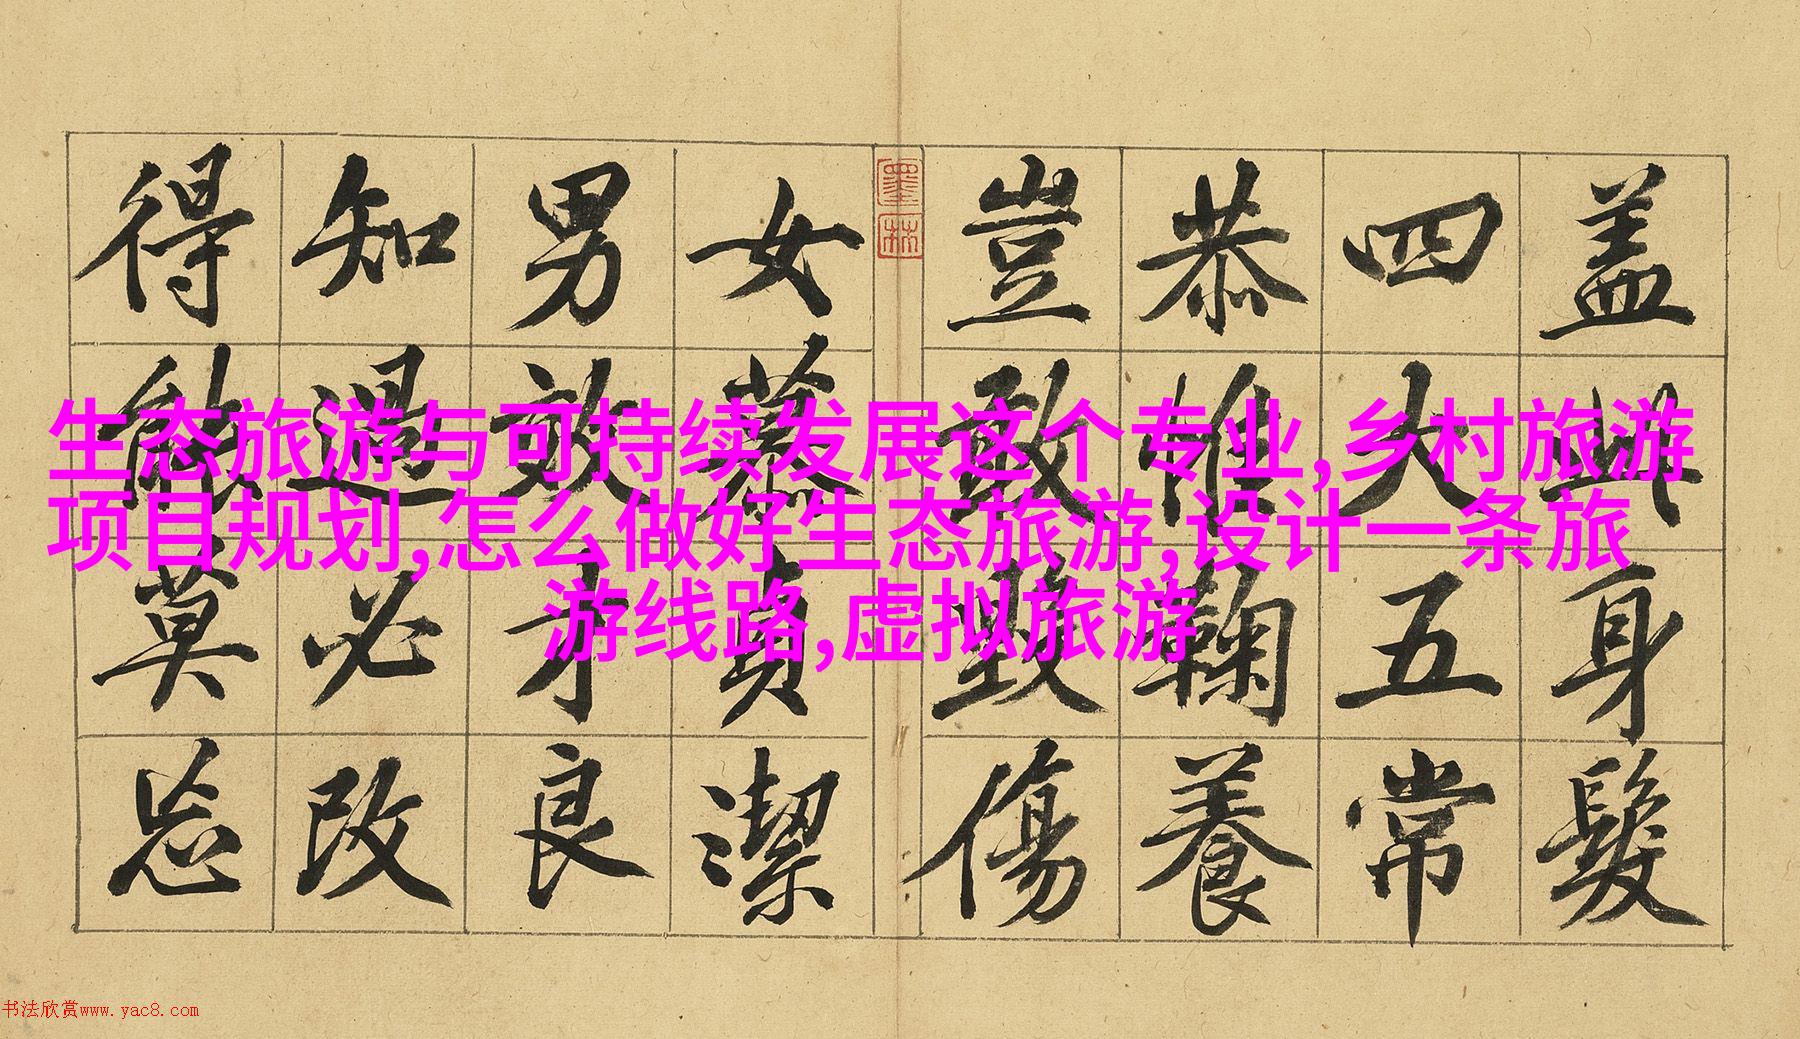 盖此身髮
四大五常
恭惟鞠養
豈敢毀傷
墨林
女慕貞潔
男效才良
知過必改
得能莫忘
生态旅游与可持续发展这个专业,乡村旅游
项目规划,怎么做好生态旅游,设计一条旅
游线路,虚拟旅游
书法欣赏www.yac8.com